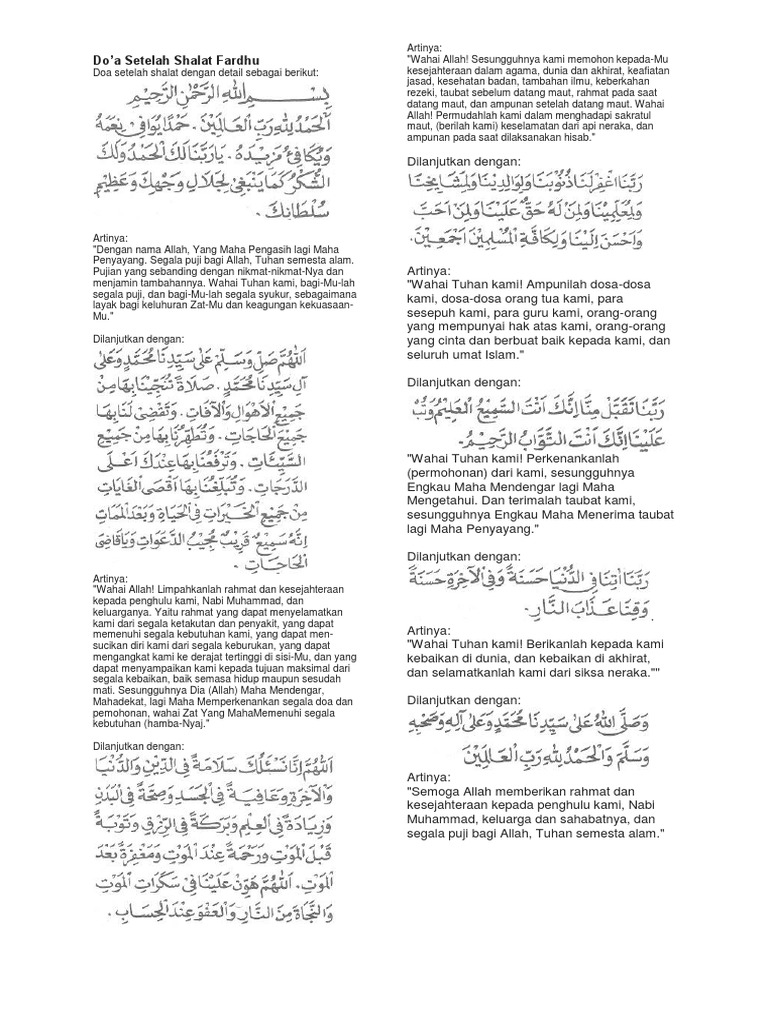 Do'a Setelah Shalat Fardhu
Doa setelah shalat dengan detail sebagai berikut:
بِسْمِ اللهِ الرَّحْمٰنِ الرَّحِيْمِ
اَلْحَمْدُ لِلّٰهِ رَبِّ الْعَالَمِيْنَ. حَمْدًا يُوَافِيْ نِعَمَهُ
وَيُكَافِئُ مَزِيْدَهُ. يَارَبَّنَا لَكَ الْحَمْدُ وَلَكَ
الشُّكْرُ كَمَا يَنْبَغِيْ لِجَلَالِ وَجْهِكَ وَعَظِيْمِ
سُلْطَانِكَ.
Artinya:
"Dengan nama Allah, Yang Maha Pengasih lagi Maha
Penyayang. Segala puji bagi Allah, Tuhan semesta alam.
Pujian yang sebanding dengan nikmat-nikmat-Nya dan
menjamin tambahannya. Wahai Tuhan kami, bagi-Mu-lah
segala puji, dan bagi-Mu-lah segala syukur, sebagaimana
layak bagi keluhuran Zat-Mu dan keagungan kekuasaan-
Mu."
Dilanjutkan dengan:
اَللّٰهُمَّ صَلِّ وَسَلِّمْ عَلٰى سَيِّدِنَا مُحَمَّدٍ وَعَلٰى
اٰلِ سَيِّدِنَا مُحَمَّدٍ. صَلَاةً تُنْجِيْنَا بِهَا مِنْ
جَمِيْعِ الْاَهْوَالِ وَالْاٰفَاتِ. وَتَقْضِيْ لَنَا بِهَا
جَمِيْعَ الْحَاجَاتِ. وَتُطَهِّرُنَا بِهَا مِنْ جَمِيْعِ
السَّيِّئَاتِ. وَتَرْفَعُنَا بِهَا عِنْدَكَ اَعْلَى
الدَّرَجَاتِ. وَتُبَلِّغُنَا بِهَا اَقْصَى الْغَايَاتِ
مِنْ جَمِيْعِ الْخَيْرَاتِ فِى الْحَيَاةِ وَبَعْدَ الْمَمَاتِ
اِنَّهُ سَمِيْعٌ قَرِيْبٌ مُجِيْبُ الدَّعَوَاتِ وَيَاقَاضِيَ
الْحَاجَاتِ.
Artinya:
"Wahai Allah! Limpahkanlah rahmat dan kesejahteraan
kepada penghulu kami, Nabi Muhammad, dan
keluarganya. Yaitu rahmat yang dapat menyelamatkan
kami dari segala ketakutan dan penyakit, yang dapat
memenuhi segala kebutuhan kami, yang dapat men-
sucikan diri kami dari segala keburukan, yang dapat
mengangkat kami ke derajat tertinggi di sisi-Mu, dan yang
dapat menyampaikan kami kepada tujuan maksimal dari
segala kebaikan, baik semasa hidup maupun sesudah
mati. Sesungguhnya Dia (Allah) Maha Mendengar,
Mahadekat, lagi Maha Memperkenankan segala doa dan
pemohonan, wahai Zat Yang MahaMemenuhi segala
kebutuhan (hamba-Nyaj."
Dilanjutkan dengan:
اَللّٰهُمَّ اِنَّا نَسْئَلُكَ سَلَامَةً فِى الدِّيْنِ وَالدُّنْيَا
وَالْاٰخِرَةِ وَعَافِيَةً فِى الْجَسَدِ وَصِحَّةً فِى الْبَدَنِ
وَزِيَادَةً فِى الْعِلْمِ وَبَرَكَةً فِى الرِّزْقِ وَتَوْبَةً
قَبْلَ الْمَوْتِ وَرَحْمَةً عِنْدَ الْمَوْتِ وَمَغْفِرَةً بَعْدَ
الْمَوْتِ. اَللّٰهُمَّ هَوِّنْ عَلَيْنَا فِيْ سَكَرَاتِ الْمَوْتِ
وَالنَّجَاةَ مِنَ النَّارِ وَالْعَفْوَ عِنْدَ الْحِسَابِ.
Artinya:
"Wahai Allah! Sesungguhnya kami memohon kepada-Mu
kesejahteraan dalam agama, dunia dan akhirat, keafiatan
jasad, kesehatan badan, tambahan ilmu, keberkahan
rezeki, taubat sebelum datang maut, rahmat pada saat
datang maut, dan ampunan setelah datang maut. Wahai
Allah! Permudahlah kami dalam menghadapi sakratul
maut, (berilah kami) keselamatan dari api neraka, dan
ampunan pada saat dilaksanakan hisab."
Dilanjutkan dengan:
رَبَّنَا اغْفِرْلَنَا ذُنُوْبَنَا وَلِوَالِدِيْنَا وَلِمَشَايِخِنَا
وَلِمُعَلِّمِيْنَا وَلِمَنْ لَهُ حَقٌّ عَلَيْنَا وَلِمَنْ اَحَبَّ
وَاَحْسَنَ اِلَيْنَا وَلِكَافَّةِ الْمُسْلِمِيْنَ اَجْمَعِيْنَ.
Artinya:
"Wahai Tuhan kami! Ampunilah dosa-dosa
kami, dosa-dosa orang tua kami, para
sesepuh kami, para guru kami, orang-orang
yang mempunyai hak atas kami, orang-orang
yang cinta dan berbuat baik kepada kami, dan
seluruh umat Islam."
Dilanjutkan dengan:
رَبَّنَا تَقَبَّلْ مِنَّا اِنَّكَ اَنْتَ السَّمِيْعُ الْعَلِيْمُ وَتُبْ
عَلَيْنَا اِنَّكَ اَنْتَ التَّوَّابُ الرَّحِيْمُ.
"Wahai Tuhan kami! Perkenankanlah
(permohonan) dari kami, sesungguhnya
Engkau Maha Mendengar lagi Maha
Mengetahui. Dan terimalah taubat kami,
sesungguhnya Engkau Maha Menerima taubat
lagi Maha Penyayang."
Dilanjutkan dengan:
رَبَّنَا اٰتِنَا فِى الدُّنْيَا حَسَنَةً وَفِى الْاٰخِرَةِ حَسَنَةً
وَقِنَا عَذَابَ النَّارِ.
Artinya:
"Wahai Tuhan kami! Berikanlah kepada kami
kebaikan di dunia, dan kebaikan di akhirat,
dan selamatkanlah kami dari siksa neraka.""
Dilanjutkan dengan:
وَصَلَّى اللهُ عَلٰى سَيِّدِنَا مُحَمَّدٍ وَعَلٰى اٰلِهِ وَصَحْبِهِ
وَسَلَّمَ وَالْحَمْدُ لِلّٰهِ رَبِّ الْعَالَمِيْنَ
Artinya:
"Semoga Allah memberikan rahmat dan
kesejahteraan kepada penghulu kami, Nabi
Muhammad, keluarga dan sahabatnya, dan
segala puji bagi Allah, Tuhan semesta alam."